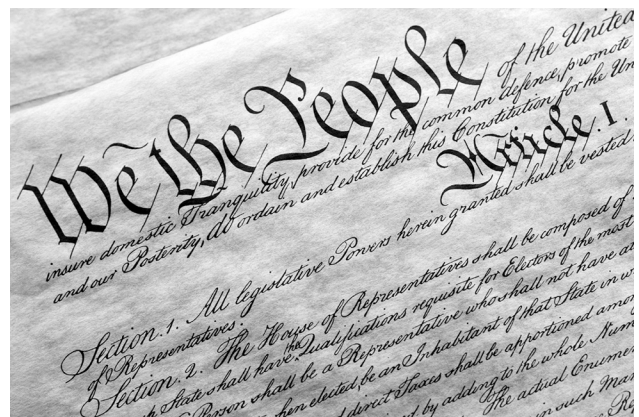 We the People of the United
insure domestic Tranquility, provide for the common defence, promote
and our Posterity, do ordain and establish this Constitution for the Un
Article. I.
Section. 1. All legislative Powers herein granted shall be vested
of Representatives.
Section. 2. The House of Representatives shall be composed of
State shall have the Qualifications requisite for Electors of the most
Person shall be a Representative who shall not have
when elected, be an Inhabitant of that State in w
direct Taxes shall be apportioned amo
by adding to the whole Num
The actual Enumer
in such Man